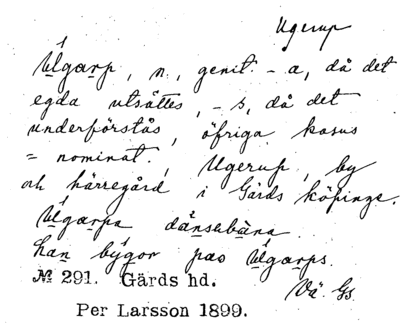 Ugerup
Ùgarp, n., genit. -a, då det
egda utsättes, -s, då det
underförstås, öfriga kasus
= nominat., Ugerup, by
och härregård i Gärds köpinge.
Ùgarpa dånsebàna.
han bygor pao Ùgarps.
Vä. Gs.
№ 291. Gärds hd.
Per Larsson 1899.